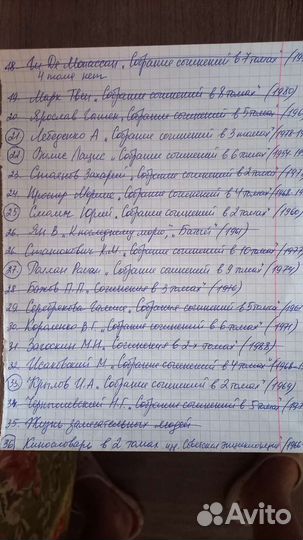 18. Ги Де Мопассан "Собрание сочинений в 7 томах"
4 тома нет
19. Марк Твен "Собрание сочинений в 8 томах" (1980)
20. Ярослав Гашек "Собрание сочинений в 5 томах"
21. Лебеденко А. "Собрание сочинений в 3 томах"
22. Вилис Лацис "Собрание сочинений в 6 томах" (1954-
23. Стоянов Захарий "Собрание сочинений в 2 томах" (197
24. Проспер Мериме "Собрание сочинений в 4 томах"
25. Смолич Юрий "Собрание сочинений в 2 томах" (196
26. Ян В. "К последнему морю", "Батый" (1981)
26. Станюкович К.М. "Собрание сочинений в 10 томах" (1977)
27. Роллан Ромен "Собрание сочинений в 9 томах" (1974)
28 Бажов П.П. "Сочинения в 3 томах" (1976)
29. Серебрякова Галина "Собрание сочинений в 5 томах"
30. Короленко В.Г. "Собрание сочинений в 6 томах" (1971)
31. Загоскин М.Н. "Сочинения в 2х томах" (1988)
32. Исаковский М. "Собрание сочинений в 4 томах"
33. Крылов И.А. "Собрание сочинений в 2 томах" (1969)
34. Чернышевский Н.Г. "Собрание сочинений в 5 томах"
35. Жизнь замечательных людей
36. Кинословарь в 2 томах изд. "Советская энциклопедия" (1966
Avito